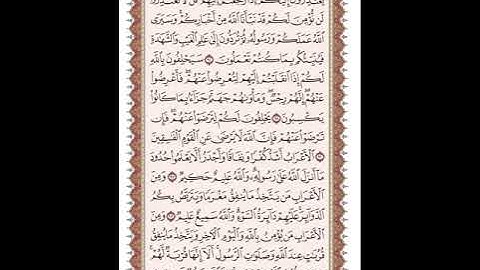 يَعْتَذِرُونَ إِلَيْكُمْ إِذَا رَجَعْتُمْ إِلَيْهِمْ قُل لَّا تَعْتَذِرُوا
لَن نُّؤْمِنَ لَكُمْ قَدْ نَبَّأَنَا اللَّهُ مِنْ أَخْبَارِكُمْ وَسَيَرَى
اللَّهُ عَمَلَكُمْ وَرَسُولُهُ ثُمَّ تُرَدُّونَ إِلَىٰ عَالِمِ الْغَيْبِ وَالشَّهَادَةِ
فَيُنَبِّئُكُم بِمَا كُنتُمْ تَعْمَلُونَ ۝ سَيَحْلِفُونَ بِاللَّهِ
لَكُمْ إِذَا انقَلَبْتُمْ إِلَيْهِمْ لِتُعْرِضُوا عَنْهُمْ ۖ فَأَعْرِضُوا
عَنْهُمْ ۖ إِنَّهُمْ رِجْسٌ ۖ وَمَأْوَاهُمْ جَهَنَّمُ جَزَاءً بِمَا كَانُوا
يَكْسِبُونَ ۝ يَحْلِفُونَ لَكُمْ لِتَرْضَوْا عَنْهُمْ ۖ فَإِن
تَرْضَوْا عَنْهُمْ فَإِنَّ اللَّهَ لَا يَرْضَىٰ عَنِ الْقَوْمِ الْفَاسِقِينَ
۝ الْأَعْرَابُ أَشَدُّ كُفْرًا وَنِفَاقًا وَأَجْدَرُ أَلَّا يَعْلَمُوا حُدُودَ
مَا أَنزَلَ اللَّهُ عَلَىٰ رَسُولِهِ ۗ وَاللَّهُ عَلِيمٌ حَكِيمٌ ۝ وَمِنَ
الْأَعْرَابِ مَن يَتَّخِذُ مَا يُنفِقُ مَغْرَمًا وَيَتَرَبَّصُ بِكُمُ
الدَّوَائِرَ ۚ عَلَيْهِمْ دَائِرَةُ السَّوْءِ ۗ وَاللَّهُ سَمِيعٌ عَلِيمٌ ۝ وَمِنَ
الْأَعْرَابِ مَن يُؤْمِنُ بِاللَّهِ وَالْيَوْمِ الْآخِرِ وَيَتَّخِذُ مَا يُنفِقُ
قُرُبَاتٍ عِندَ اللَّهِ وَصَلَوَاتِ الرَّسُولِ ۚ أَلَا إِنَّهَا قُرْبَةٌ لَّهُمْ ۚ